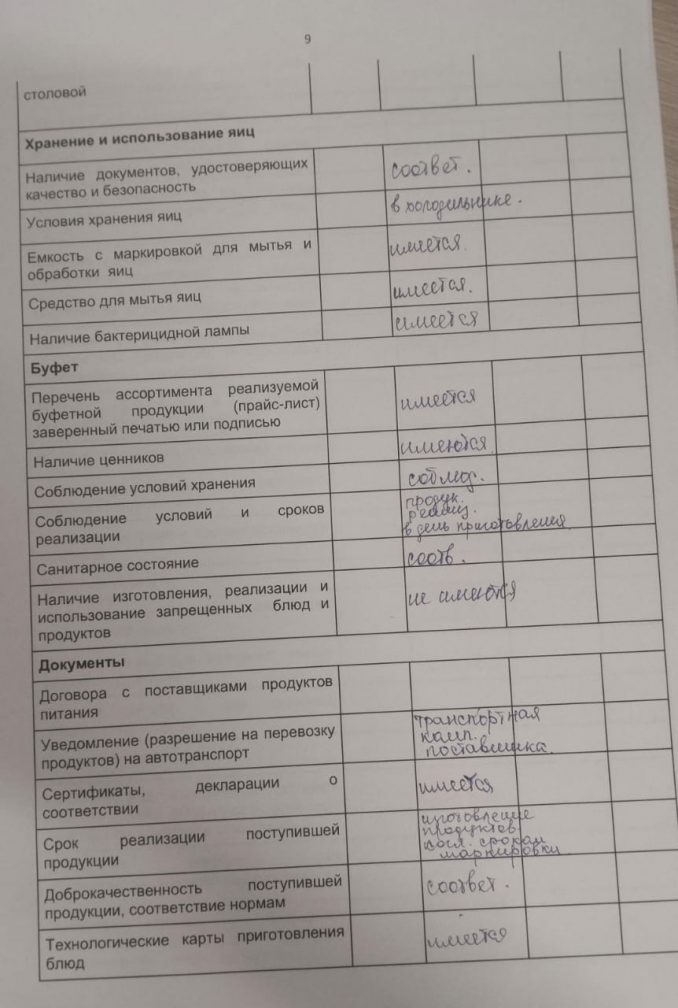 9
столовой
Хранение и использование яиц
Наличие документов, удостоверяющих
качество и безопасность
соответ.
Условия хранения яиц
в холодильнике.
Емкость с маркировкой для мытья и
обработки яиц
имеется.
Средство для мытья яиц
имеется.
Наличие бактерицидной лампы
имеется
Буфет
Перечень ассортимента реализуемой
буфетной продукции (прайс-лист)
заверенный печатью или подписью
имеется
Наличие ценников
имеются
Соблюдение условий хранения
соблюд.
Соблюдение условий и сроков
реализации
продук.
реализ.
в день приготовления
Санитарное состояние
соотв.
Наличие изготовления, реализации и
использование запрещенных блюд и
продуктов
не имеются
Документы
Договора с поставщиками продуктов
питания
Уведомление (разрешение на перевозку
продуктов) на автотранспорт
транспортная
комп.
поставщика
Сертификаты, декларации о
соответствии
имеется
Срок реализации поступившей
продукции
продуктов
согл. срокам
маркировки
Доброкачественность поступившей
продукции, соответствие нормам
соответ.
Технологические карты приготовления
блюд
имеется